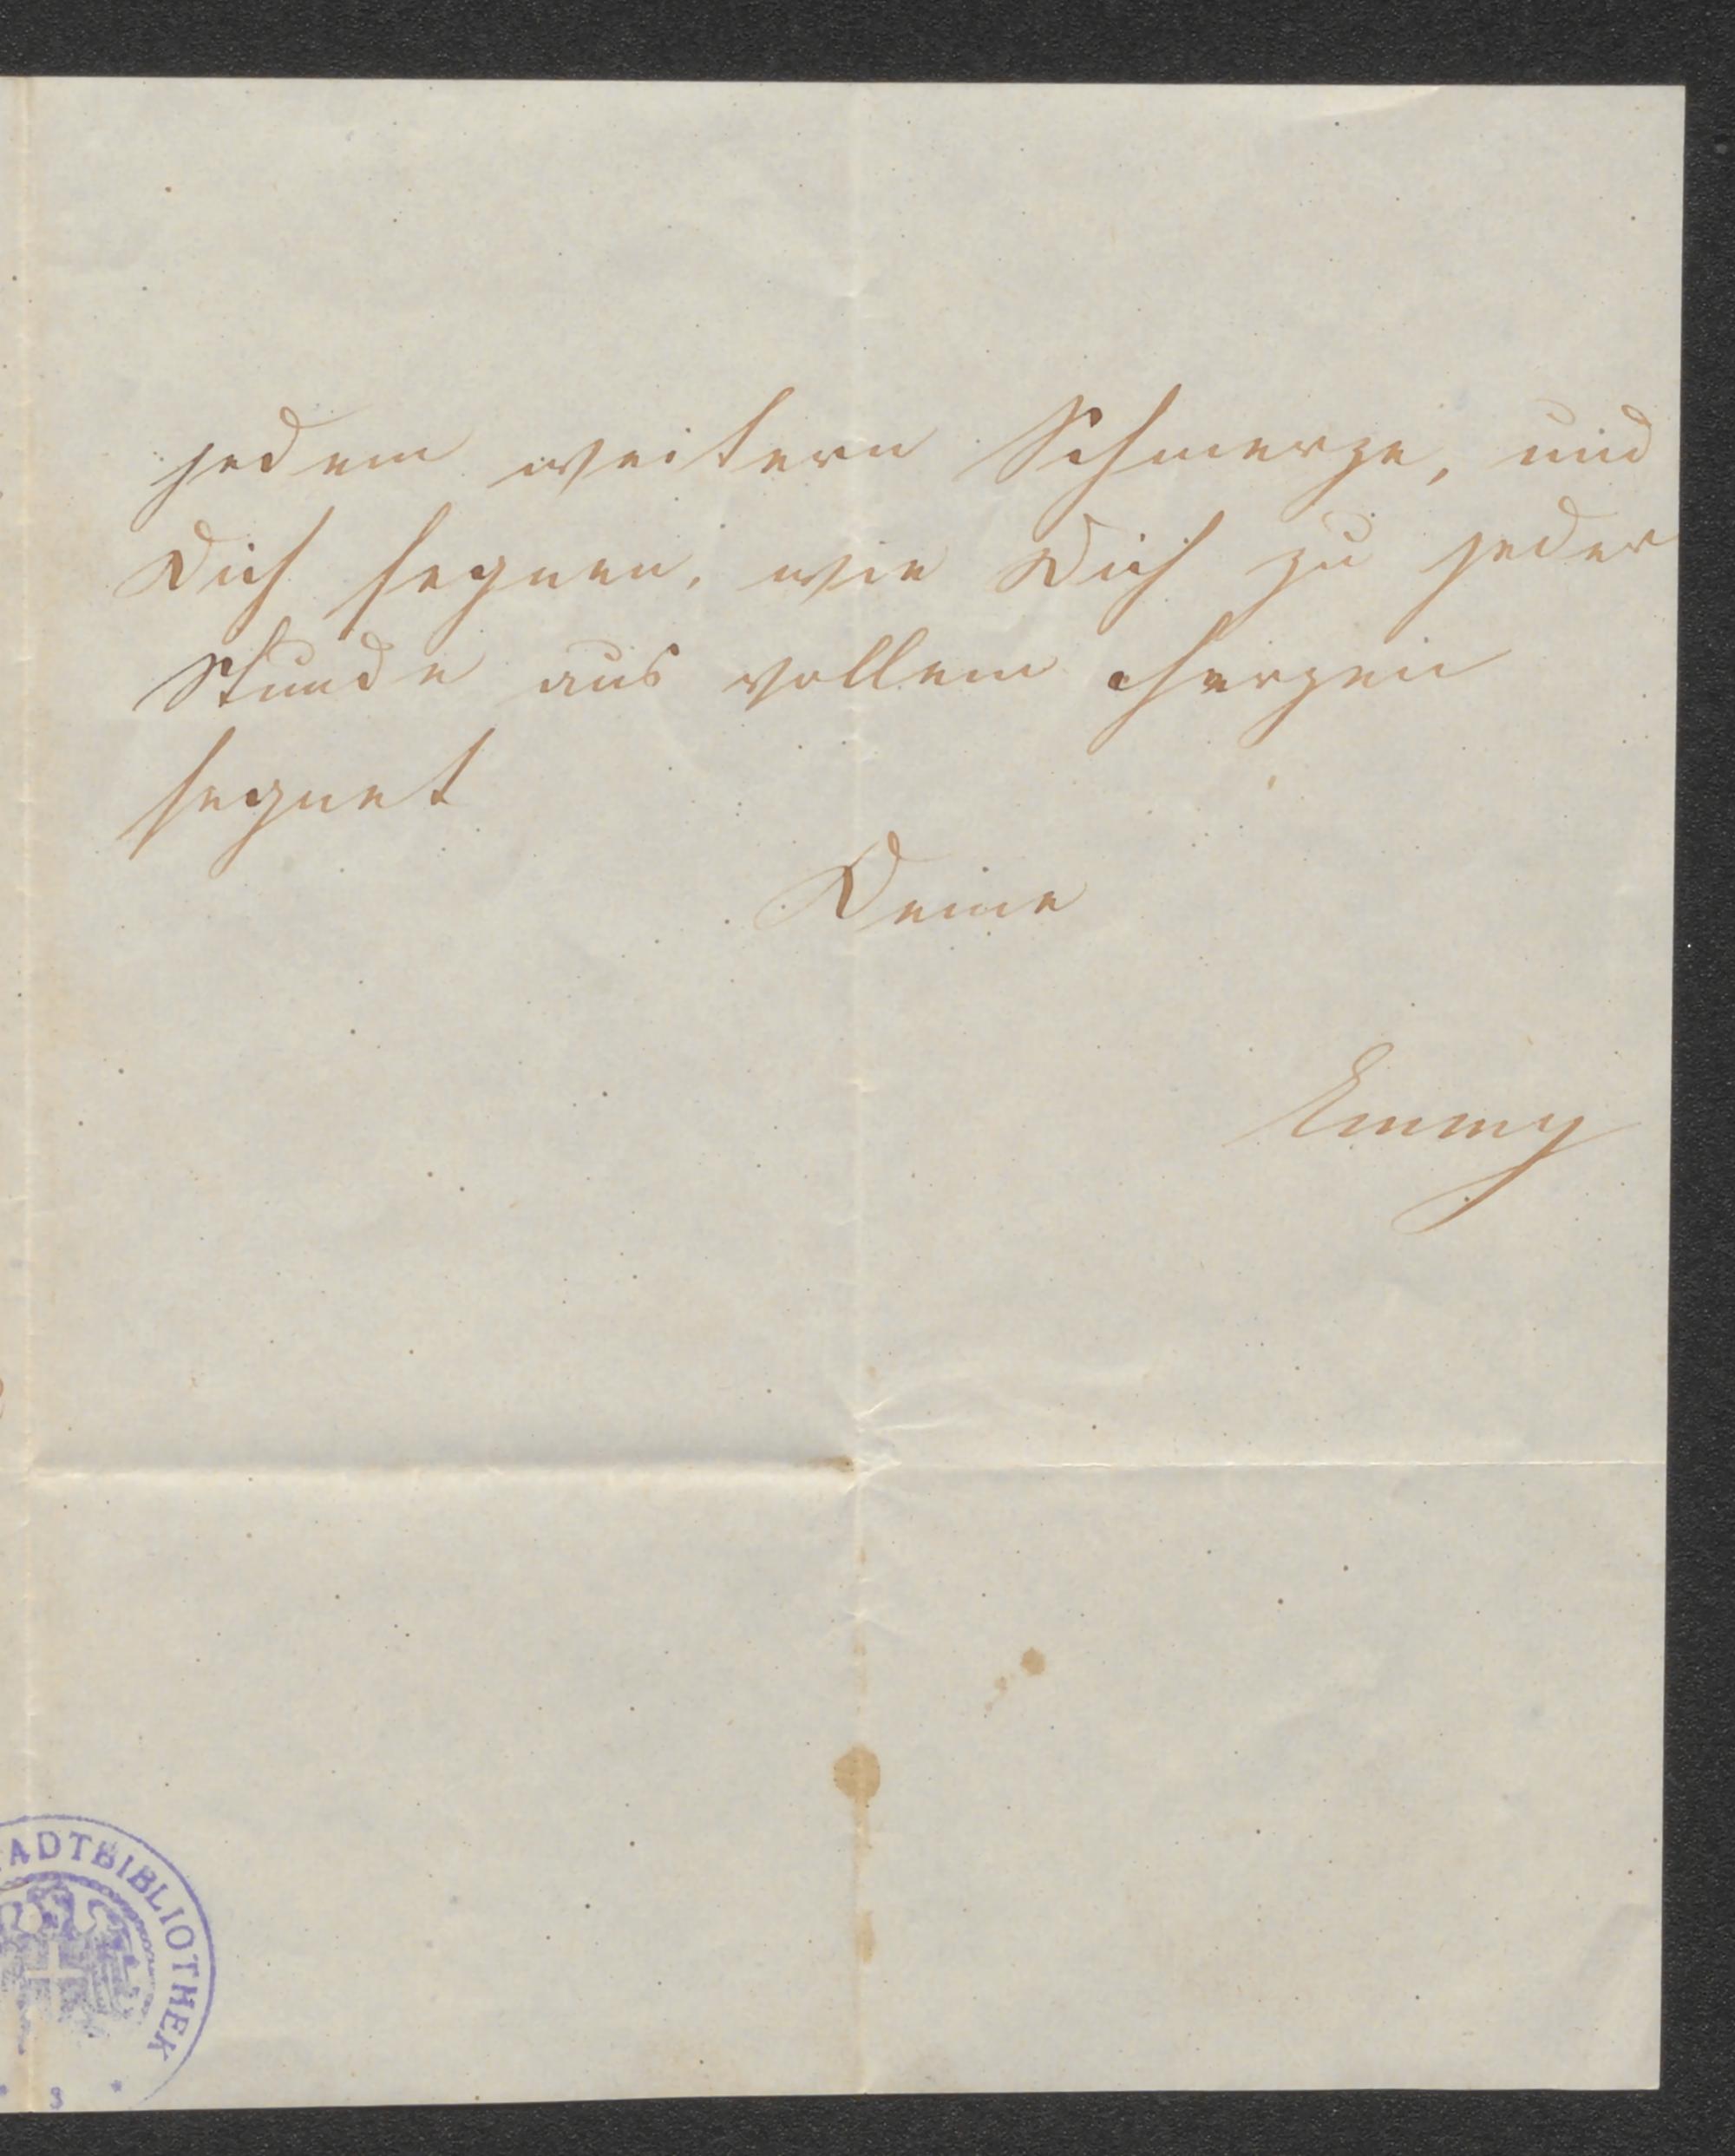 jedem weitern Schmerze, und
Dich segnen, wie Dich zu jeder
Stunde aus vollem Herzen
segnet
Deine
Emmy
ADTBIBLIOTHEK
* 8 *